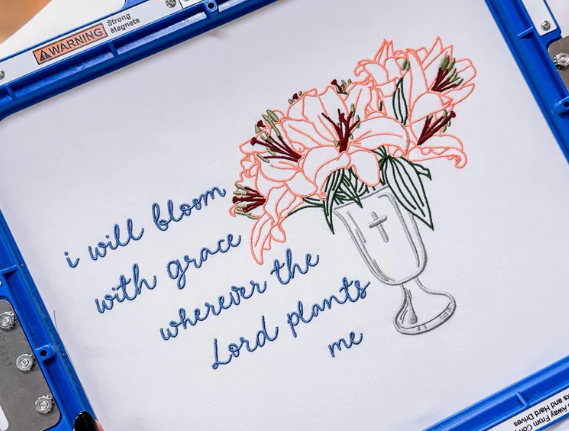 WARNING
Strong
Magnets
i will bloom
with grace
wherever the
Lord plants
me
and Hard Drives